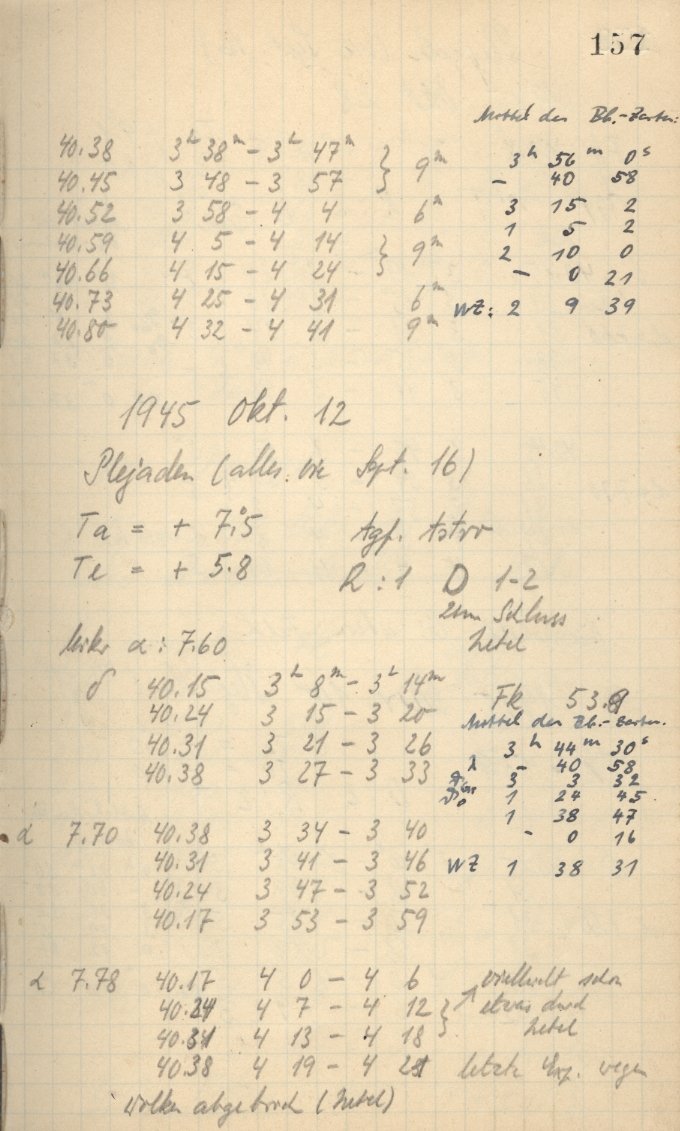 157
Mittel der Bb.-Zeiten:
40.38 3h 38m – 3h 47m } 9m 3h 56m 0s
40.45 3 48 – 3 57 – 40 58
40.52 3 58 – 4 4 6m 3 15 2
1 5 2
40.59 4 5 – 4 14 } 9m 2 10 0
40.66 4 15 – 4 24 – 0 21
40.73 4 25 – 4 31 6m WZ: 2 9 39
40.80 4 32 – 4 41 9m
1945 Okt. 12
Plejaden (alles wie Sept. 16)
Ta = + 7.°5 Agf. Astro
Te = + 5.8 R : 1 D 1-2
zum Schluss
Nebel
Mikr α : 7.60
δ 40.15 3h 8m – 3h 14m Fk 53.9
40.24 3 15 – 3 20 Mittel der Bb.-Zeiten.
40.31 3 21 – 3 26 3h 44m 30s
40.38 3 27 – 3 33 λ – 40 58
3 3 32
1 24 45
1 38 47
α 7.70 40.38 3 34 – 3 40 – 0 16
40.31 3 41 – 3 46 WZ 1 38 31
40.24 3 47 – 3 52
40.17 3 53 – 3 59
α 7.78 40.17 4 0 – 4 6 vielleicht schon
40.24 4 7 – 4 12 } etwas durch
40.31 4 13 – 4 18 Nebel
40.38 4 19 – 4 21 letzte Exp. wegen
Wolken abgebroch (Nebel)